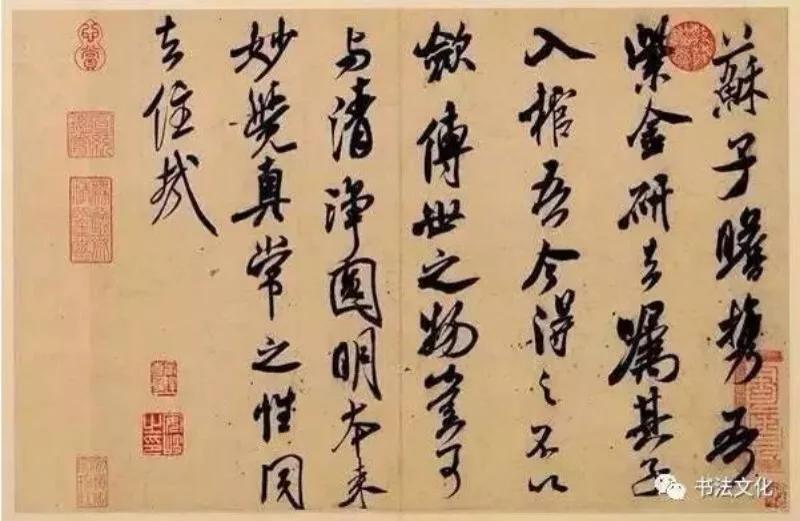 蘇子瞻携吾
紫金研去嘱其子
入棺吾今得之不以
歛傳世之物豈可
与清淨圓明本来
妙覺真常之性同
去住哉
书法文化